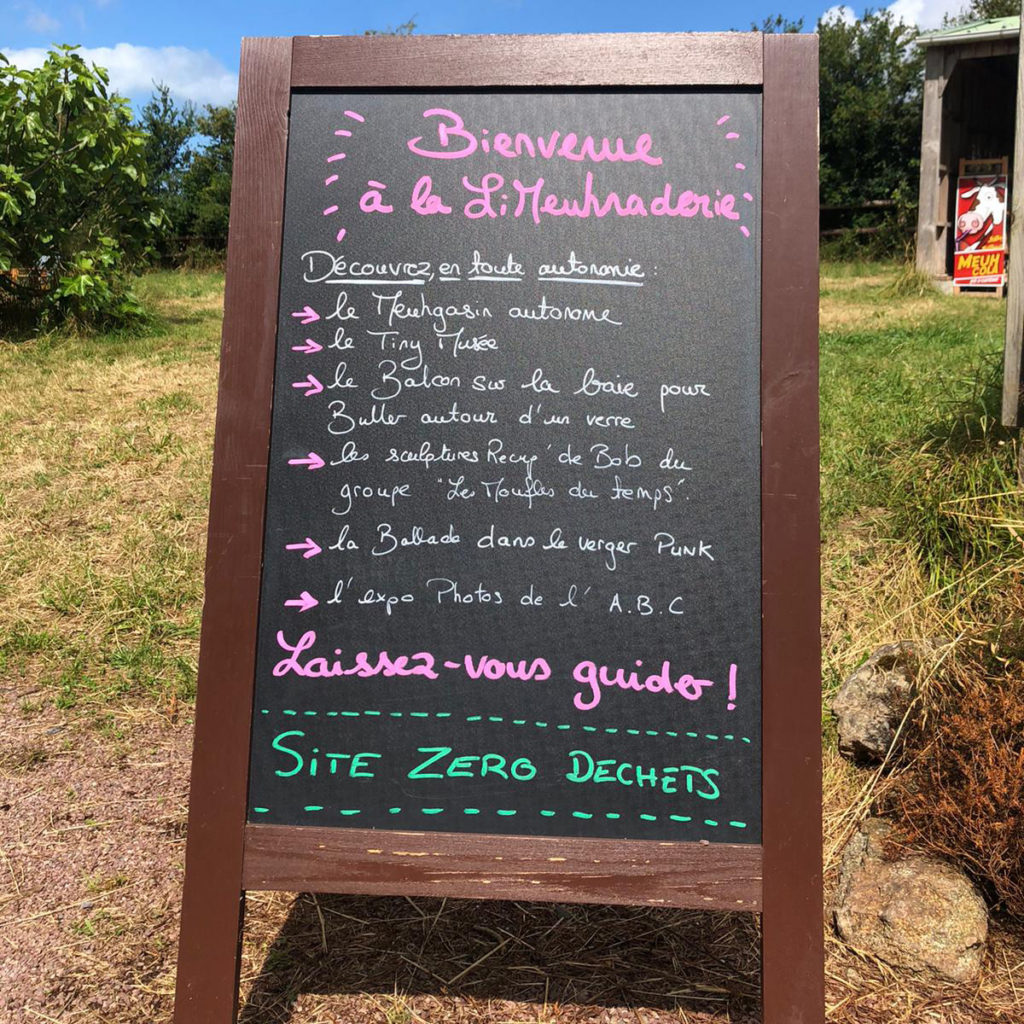 Bienvenue
à la LiMeuhnaderie
Découvrez, en toute autonomie :
→ le Meuhgasin autonome
→ le Tiny Musée
→ le Balcon sur la baie pour
Buller autour d'un verre
→ les sculptures Recup' de Bob du
groupe "Les Moufles du temps".
→ la Ballade dans le verger PUNK
→ l'expo Photos de l'A.B.C
Laissez-vous guider !
SITE ZERO DECHETS
MEUH
COLA